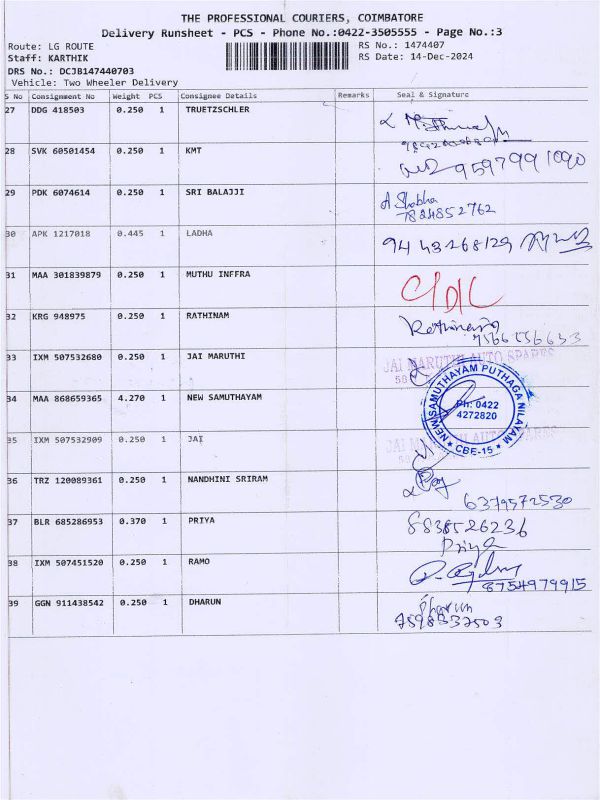 THE PROFESSIONAL COURIERS, COIMBATORE
Delivery Runsheet - PCS - Phone No.:0422-3505555 - Page No.:3
Route: LG ROUTE RS No.: 1474407
Staff: KARTHIK RS Date: 14-Dec-2024
DRS No.: DCJB147440703
Vehicle: Two Wheeler Delivery
S No Consignment No Weight PCS Consignee Details Remarks Seal & Signature
27 DDG 418503 0.250 1 TRUETZSCHLER
28 SVK 60501454 0.250 1 KMT 9597991090
29 PDK 6074614 0.250 1 SRI BALAJJI A Shobha
7824852762
30 APK 1217018 0.445 1 LADHA 9443268129
31 MAA 301839879 0.250 1 MUTHU INFFRA
32 KRG 948975 0.250 1 RATHINAM
33 IXM 507532680 0.250 1 JAI MARUTHI JAI MARUTHI AUTO SPARES
34 MAA 868659365 4.270 1 NEW SAMUTHAYAM NEW SAMUTHAYAM PUTHAGA NILAYAM
Ph: 0422
4272820
CBE-15
35 IXM 507532909 0.250 1 JAI JAI MARUTHI AUTO SPARES
36 TRZ 120089361 0.250 1 NANDHINI SRIRAM
6379572530
37 BLR 685286953 0.370 1 PRIYA 8838526236
Priya
38 IXM 507451520 0.250 1 RAMO
8754979915
39 GGN 911438542 0.250 1 DHARUN Dharun
7598337503